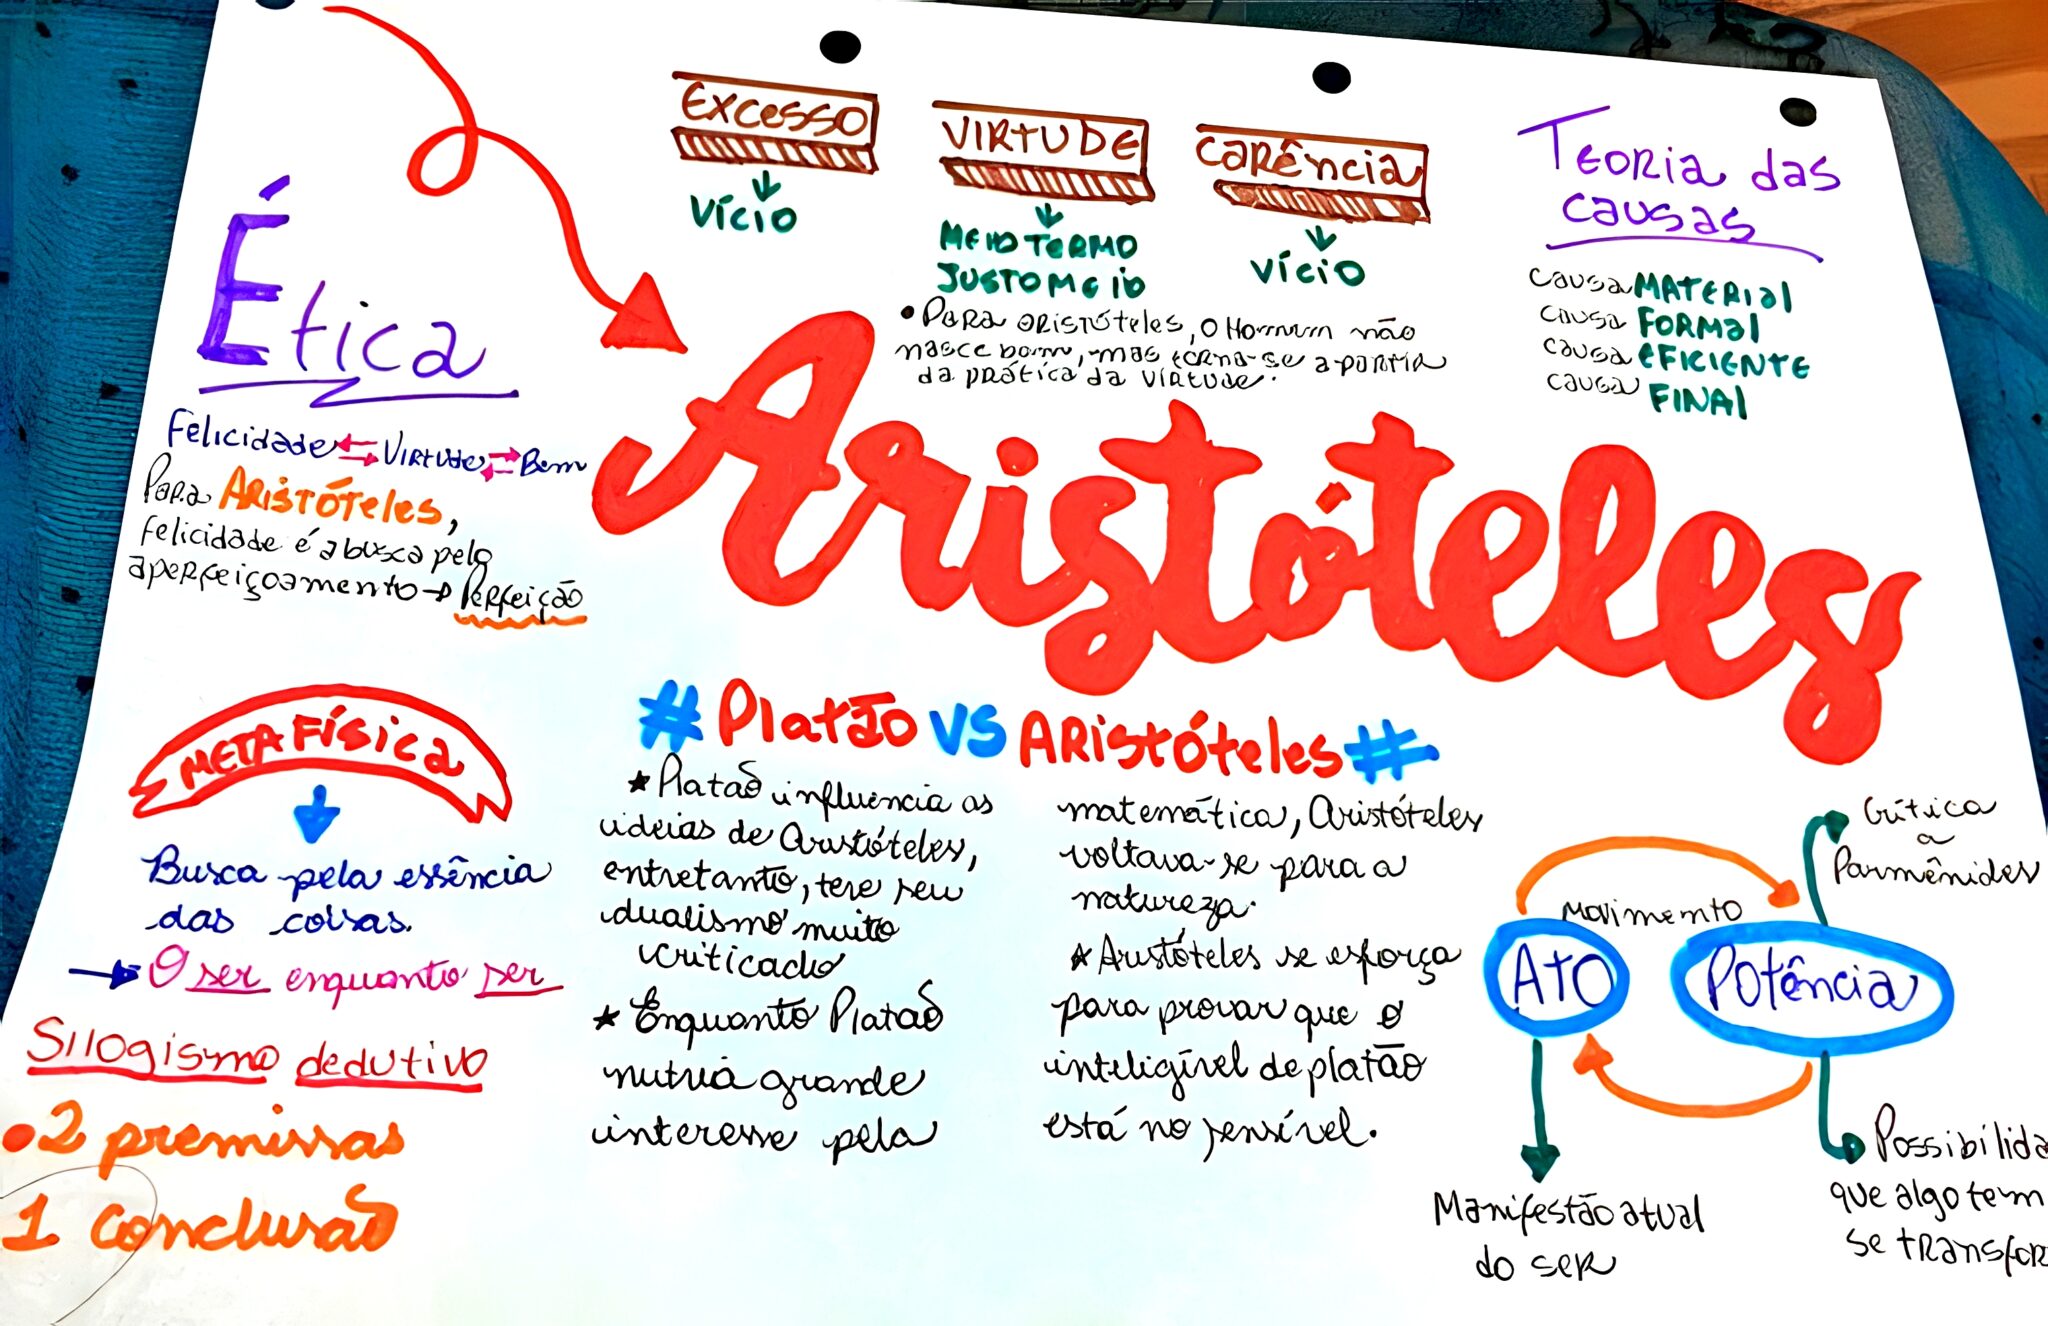 Excesso
Vício
Virtude
Meio termo
Justo meio
Carência
Vício
• Para Aristóteles, o Homem não
nasce bom, mas torna-se a partir
da prática da virtude.
Teoria das
causas
causa MATERIAL
causa FORMAL
causa EFICIENTE
causa FINAL
Ética
Felicidade Virtude Bem
Para Aristóteles,
felicidade é a busca pelo
aperfeiçoamento → Perfeição
Aristóteles
Metafísica
Busca pela essência
das coisas.
→ O ser enquanto ser
Silogismo dedutivo
• 2 premissas
1 conclusão
# Platão VS Aristóteles #
★ Platão influencia as
ideias de Aristóteles,
entretanto, teve seu
dualismo muito
criticado
★ Enquanto Platão
nutria grande
interesse pela
matemática, Aristóteles
voltava-se para a
natureza.
★ Aristóteles se esforça
para provar que o
inteligível de platão
está no sensível.
Crítica
a
Parmênides
movimento
Ato
Potência
Manifestão atual
do ser
Possibilida
que algo tem
se transfor